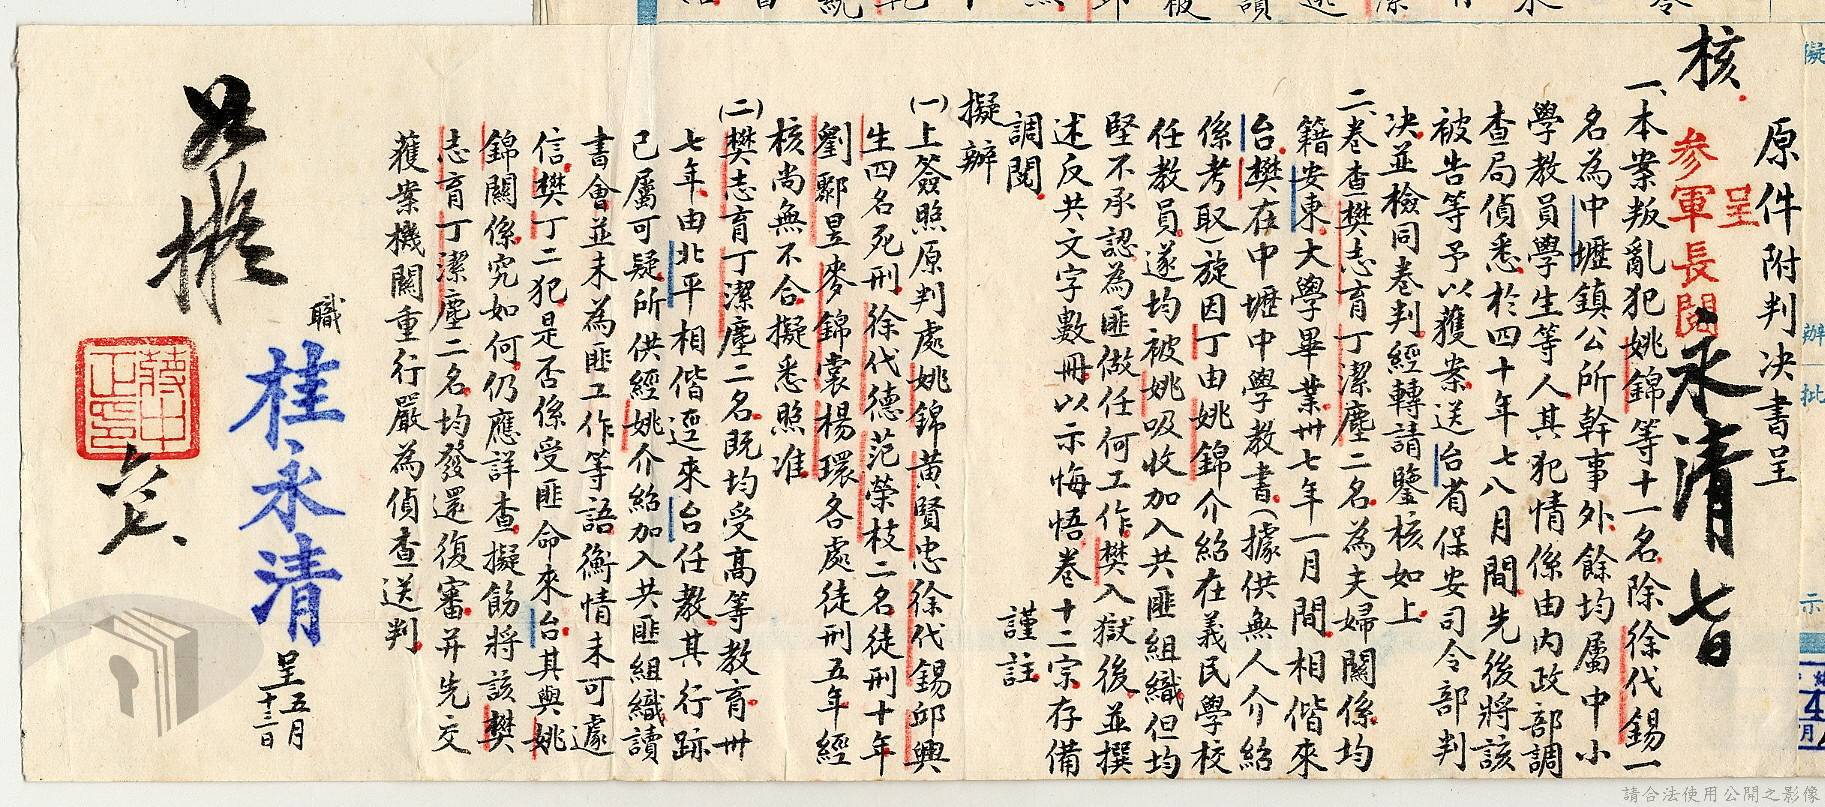 核
原件附判决書呈
呈
參軍長閱
永清
七日
一、本案叛亂犯姚錦等十一名除徐代錫一
名為中壢鎮公所幹事外餘均屬中小
學教員學生等人其犯情係由內政部調
查局偵悉於四十年七八月間先後將該
被告等予以獲案送台省保安司令部判
決並檢同卷判經轉請鑒核如上
二、卷查樊志育丁潔塵二名為夫婦關係均
籍安東大學畢業卅七年一月間相偕來
台樊在中壢中學教書(據供無人介紹
係考取)旋因丁由姚錦介紹在義民學校
任教員遂均被姚吸收加入共匪組織但均
堅不承認為匪做任何工作樊入獄後並撰
述反共文字數冊以示悔悟卷十二宗存備
調閱
謹註
擬辦
(一)上簽照原判處姚錦黃賢忠徐代錫邱興
生四名死刑徐代德范榮枝二名徒刑十年
劉鄹昱麥錦裳楊環各處徒刑五年經
核尚無不合擬悉照准
(二)樊志育丁潔塵二名既均受高等教育卅
七年由北平相偕逕來台任教其行跡
已屬可疑所供經姚介紹加入共匪組織讀
書會並未為匪工作等語衡情未可遽
信樊丁二犯是否係受匪命來台其與姚
錦關係究如何仍應詳查擬飭將該樊
志育丁潔塵二名均發還復審并先交
獲案機關重行嚴為偵查送判
職
桂永清
呈
五月
十三日
如擬
蔣中
正印
六、七、
擬
辦
批
示
4
月
請合法使用公開之影像